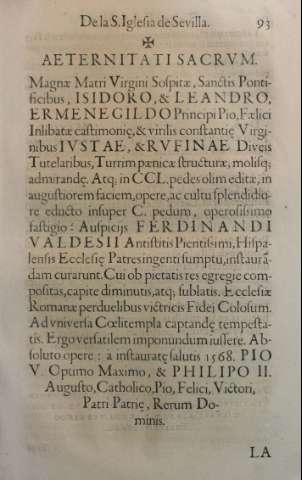 De la S. Iglesia de Sevilla. 93
✠
AETERNITATI SACRVM.
Magnæ Matri Virgini Sospitæ, Sanctis Ponti-
ficibus, ISIDORO, & LEANDRO,
ERMENEGILDO Principi Pio, Fælici
Inlibatæ castimonię, & virilis constantię Virgi-
nibus IVSTAE, & RVFINAE Divęis
Tutelaribus, Turrim pœnicæ structuræ, molisq;
admirandę. Atq; in CCL. pedes olim editæ, in
augustiorem faciem, opere, ac cultu splendidio-
re educto insuper C. pedum, operosissimo
fastigio: Auspicijs FERDINANDI
VALDESII Antistitis Pientissimi, Hispa-
lensis Ecclesię Patres ingenti sumptu, instaurā-
dam curarunt. Cui ob pietatis res egregie com-
positas, capite diminutis, atq; sublatis. Ecclesiæ
Romanæ perduelibus victricis Fidei Colosum.
Ad vniversa Cœlitempla captandę tempesta-
tis. Ergo versatilem imponundum iussere. Ab-
soluto opere: à instauratę salutis 1568. PIO
V. Optimo Maximo, & PHILIPO II.
Augusto, Catholico, Pio, Felici, Victori,
Patri Patrię, Rerum Do-
minis.
LA